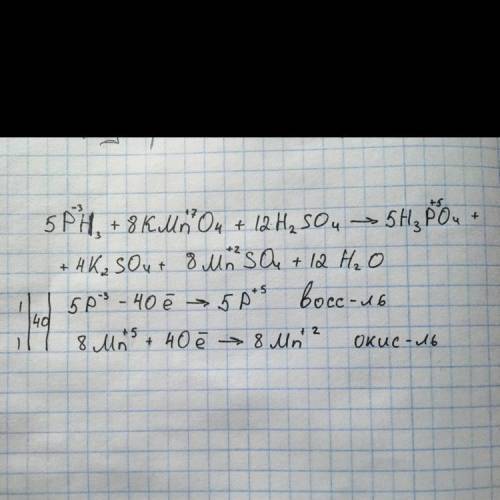 5P⁻³H₃ + 8KMn⁺⁷O₄ + 12H₂SO₄ → 5H₃P⁺⁵O₄ +
+ 4K₂SO₄ + 8Mn⁺²SO₄ + 12H₂O
1 | 40 | 5P⁻³ - 40ē → 5P⁺⁵ восс-ль
1 | | 8Mn⁺⁵ + 40ē → 8Mn⁺² окис-ль